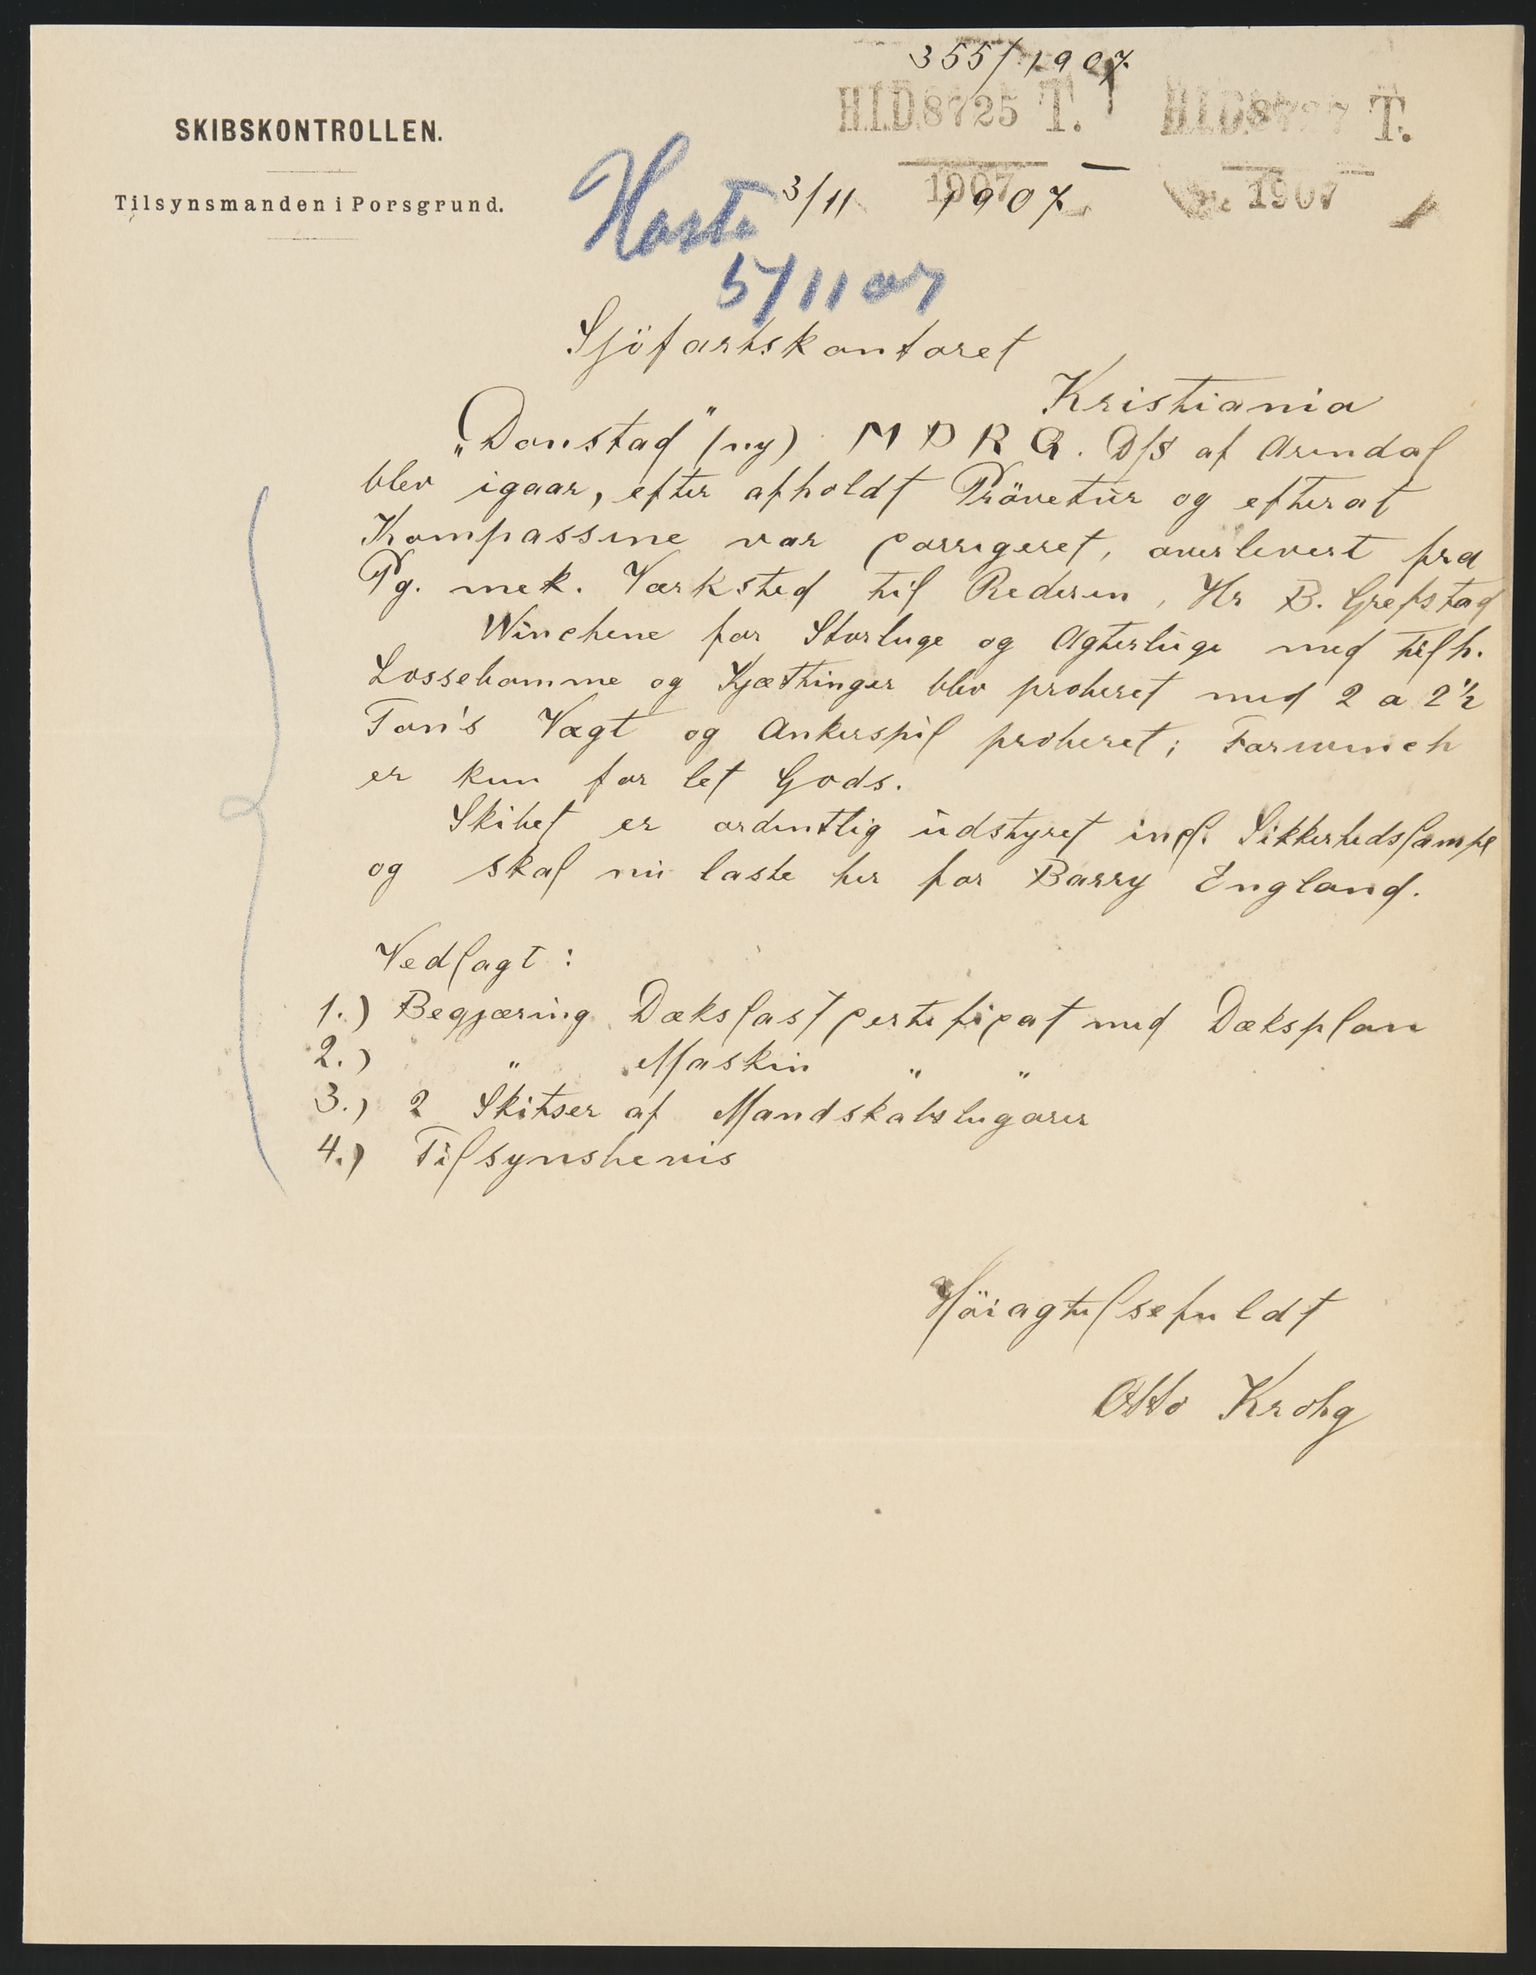 355/1907
H.I.D.8725 T.
1907
T.
1907
SKIBSKONTROLLEN.
Tilsynsmanden i Porsgrund.
Haste
3/11 1907
5/11 07
Sjöfartskontoret
Kristiania
„Donstad" (ny) MDRG. D/S af Arendal
blev igaar, efter afholdt Prövetur og efterat
Kompassene var corrigeret, overlevert fra
Pg. mek. Værksted til Rederen, Hr B. Grefstad
Winchene for Storluge og Agterluge med tilh.
Lossebomme og Kjættinger blev proberet med 2 a 2½
Ton's Vægt og Ankerspil proberet; Forwinch
er kun for let Gods.
Skibet er ordentlig udstyret incl. Sikkerhedslampe
og skal nu laste her for Barry England.
Vedlagt:
1.) Begjæring Dækslastcertificat med Dæksplan
2.) " Maskin " "
3.) 2 Skitser af Mandskabslugarer
4.) Tilsynsbevis
Höiagtelsefuldt
Otto Krohg